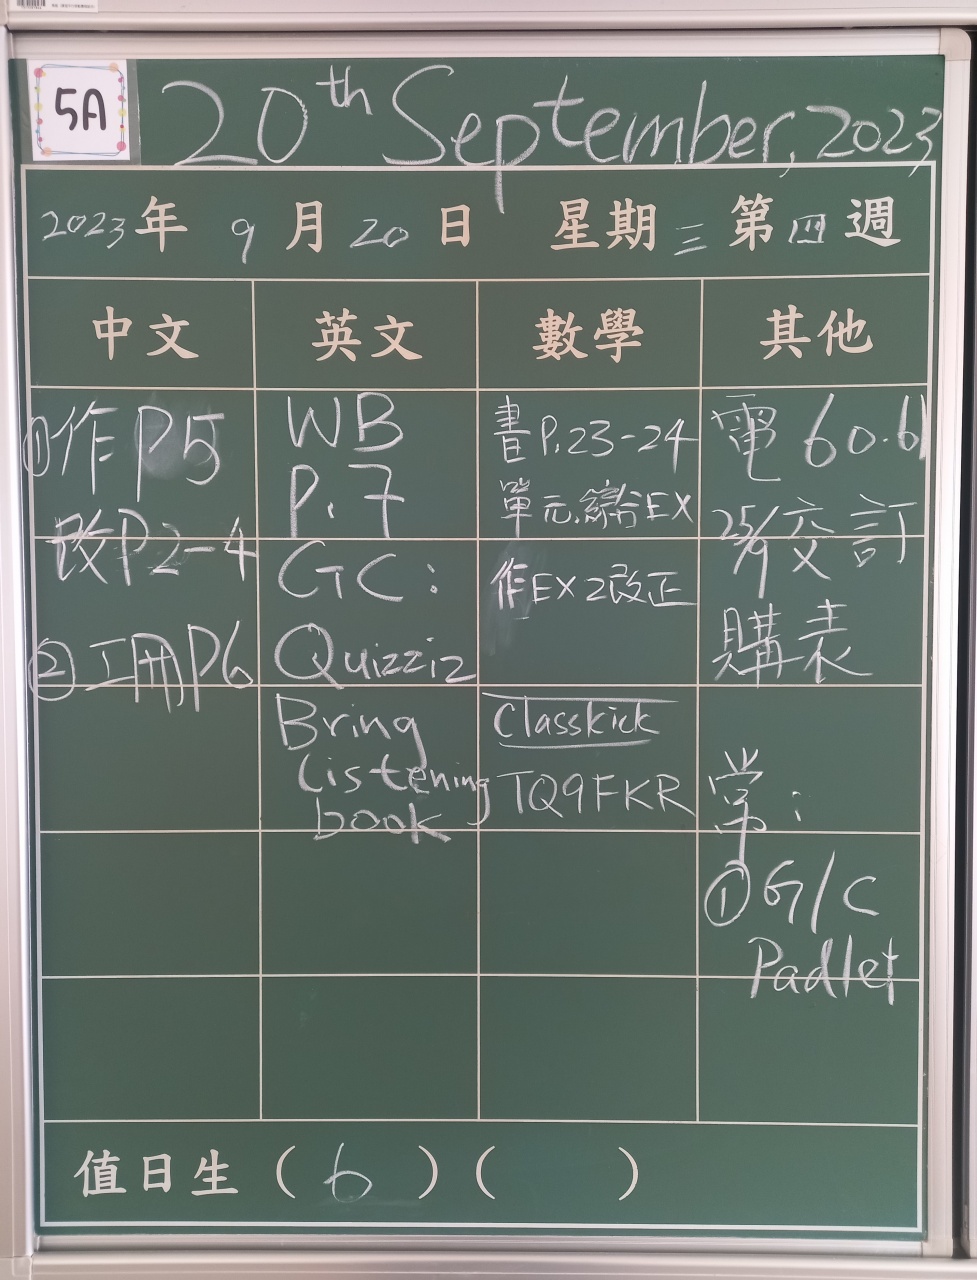 5A
20th September, 2023
2023年 9月20日 星期三 第四週
中文
英文
數學
其他
①作P5
改P2-4
②工冊P6
WB
P.7
GC:
Quizziz
Bring
Listening
book
書P.23-24
單元綜合EX
作EX2改正
Classkick
TQ9FKR
電60.61
25/9交訂
購表
常:
①G/C
Padlet
值日生(6)( )